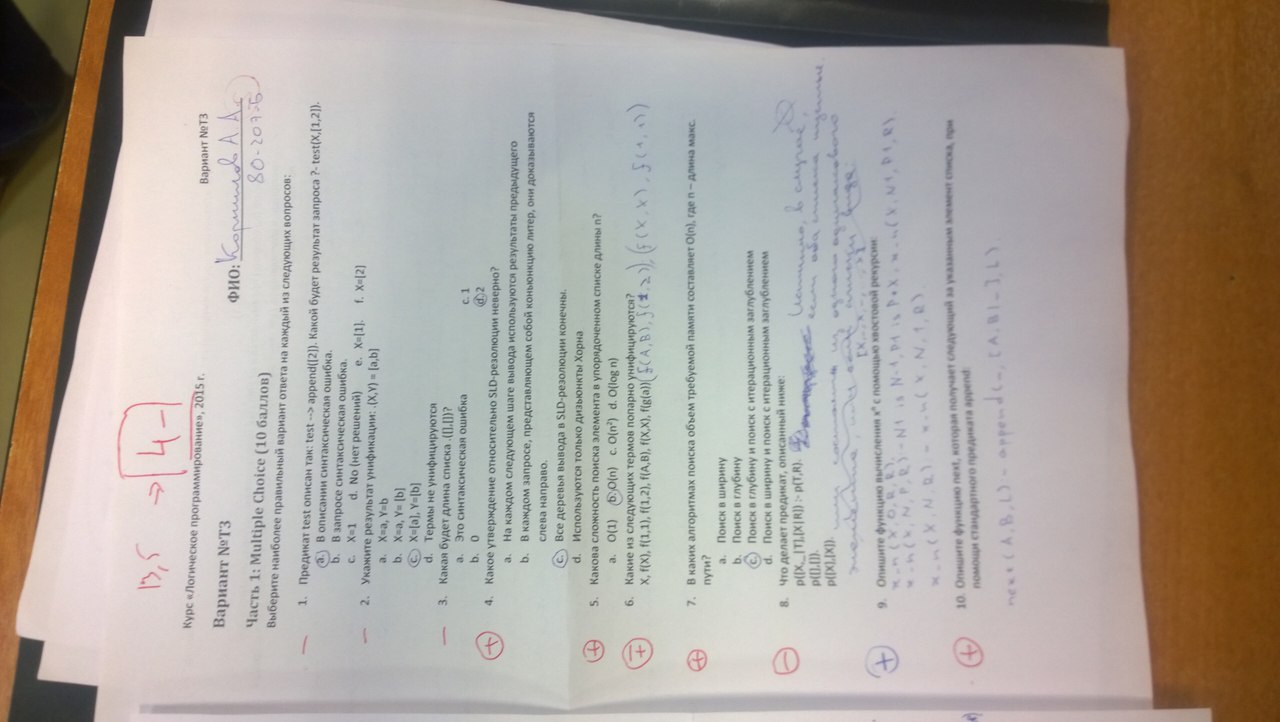 13,5 → 4-
Курс «Логическое программирование», 2015 г. Вариант №Т3
Вариант №Т3 ФИО: Корнилов А.А.
80-207Б
Часть 1: Multiple Choice (10 баллов)
Выберите наиболее правильный вариант ответа на каждый из следующих вопросов:
1. Предикат test описан так: test --> append([2]). Какой будет результат запроса ?- test(X,[1,2]).
a. В описании синтаксическая ошибка.
b. В запросе синтаксическая ошибка.
c. X=1 d. No (нет решений) e. X=[1]. f. X=[2]
2. Укажите результат унификации: .(X,Y) = [a,b]
a. X=a, Y=b
b. X=a, Y= [b]
c. X=[a], Y=[b]
d. Термы не унифицируются
3. Какая будет длина списка .([],[])?
a. Это синтаксическая ошибка c. 1
b. 0 d. 2
4. Какое утверждение относительно SLD-резолюции неверно?
a. На каждом следующем шаге вывода используются результаты предыдущего
b. В каждом запросе, представляющем собой конъюнкцию литер, они доказываются
слева направо.
c. Все деревья вывода в SLD-резолюции конечны.
d. Используются только дизъюнкты Хорна
5. Какова сложность поиска элемента в упорядоченном списке длины n?
a. O(1) b. O(n) c. O(n²) d. O(log n)
6. Какие из следующих термов попарно унифицируются?
X, f(X), f(1,1), f(1,2), f(A,B), f(X,X), f(g(a)) (f(A,B), f(1,2)), (f(X,X), f(1,1))
7. В каких алгоритмах поиска объем требуемой памяти составляет O(n), где n – длина макс.
пути?
a. Поиск в ширину
b. Поиск в глубину
c. Поиск в глубину и поиск с итерационным заглублением
d. Поиск в ширину и поиск с итерационным заглублением
8. Что делает предикат, описанный ниже:
p([X,_|T],[X|R]) :- p(T,R). Истинно, в случае,
p([],[]). если оба списка пустые
p([X],[X]). или состоят из одного одинакового
элемента, или вида:
9. Опишите функцию вычисления xⁿ с помощью хвостовой рекурсии:
x_n(X,0,R,R).
x_n(X,N,P,R) :- N1 is N-1, P1 is P*X, x_n(X,N1,P1,R).
x_n(X,N,R) :- x_n(X,N,1,R).
10. Опишите функцию next, которая получает следующий за указанным элемент списка, при
помощи стандартного предиката append:
next(A,B,L) :- append(_,[A,B|_],L).